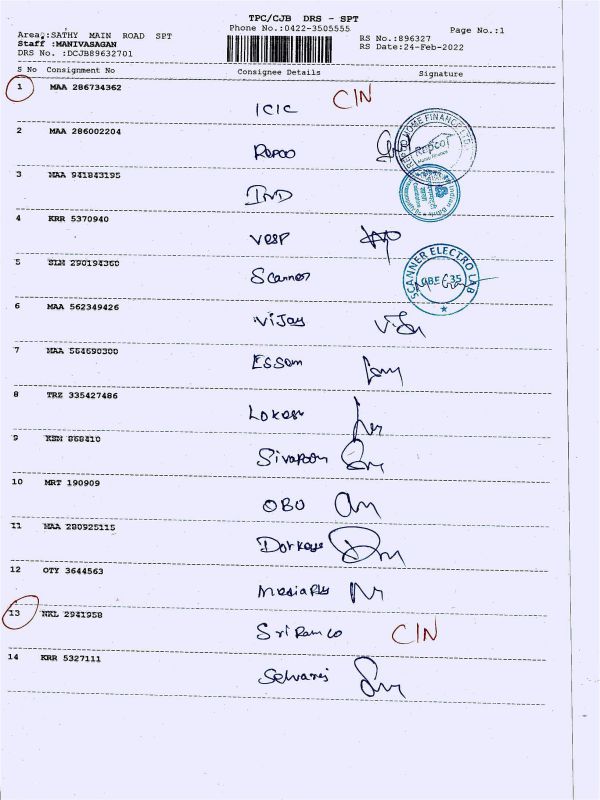 TPC/CJB DRS - SPT
Phone No.:0422-3505555
Page No.:1
Area:SATHY MAIN ROAD SPT
RS No.:896327
Staff :MANIVASAGAN
RS Date:24-Feb-2022
DRS No. :DCJB89632701
S No Consignment No Consignee Details Signature
1 MAA 286734362
ICIC CIN
2 MAA 286002204
Repco
REPCO HOME FINANCE LTD
3 MAA 941843195
IND
Indian Bank
4 KRR 5370940
vesp
5 SLM 290194360
Scanner
SCANNER ELECTRO LAB
CBE 35
6 MAA 562349426
Vijay
7 MAA 564690300
Essam
8 TRZ 335427486
Lokesh
9 KBN 868410
10 MRT 190909
OBU
11 MAA 280925115
12 OTY 3644563
13 NKL 2941958
Sri Ram co CIN
14 KRR 5327111
Selvaraj